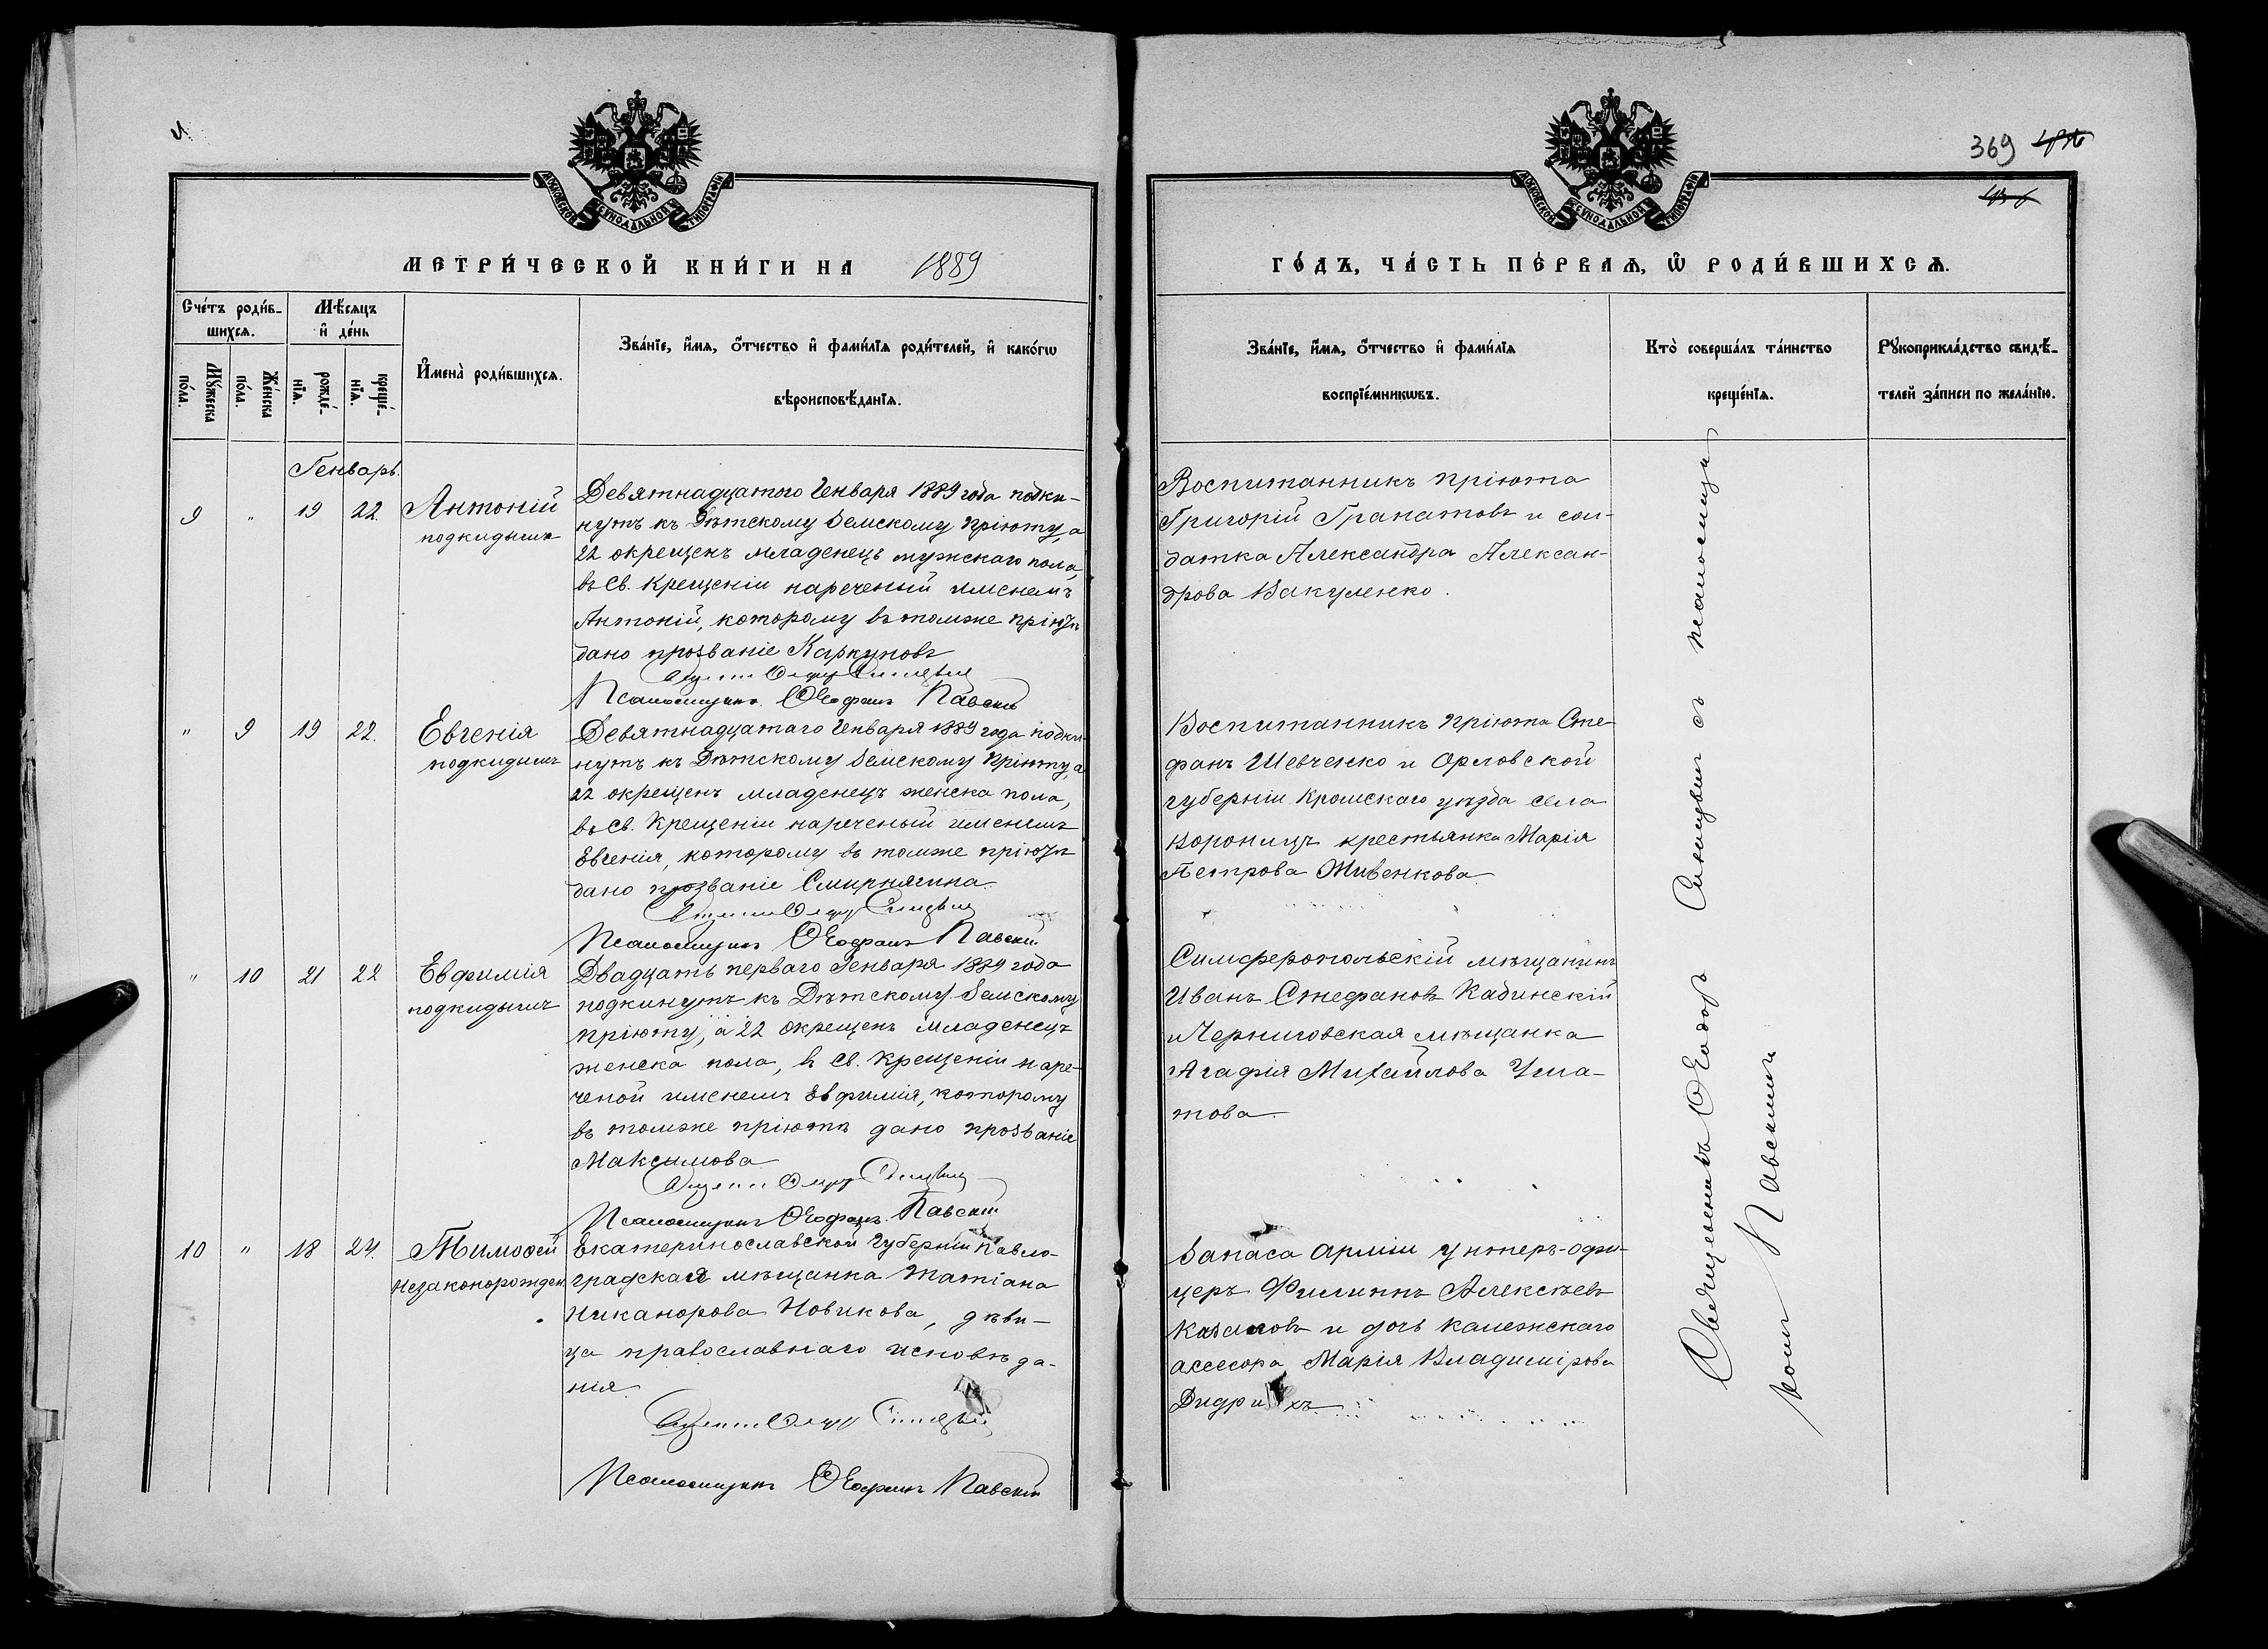 369
МОСКОВСКОЙ СѴНОДАЛЬНОЙ ТИПОГРАФІИ
МЕТРИ́ЧЕСКОЙ КНИ́ГИ НА 1889
МОСКОВСКОЙ СѴНОДАЛЬНОЙ ТИПОГРАФІИ
ГО́ДЪ, ЧА́СТЬ ПЕ́РВАѦ, Ѡ РОДИ́ВШИХСѦ.
Сче́тъ роди́в-
шихся.
Мꙋ́жеска
по́ла.
Же́нска
по́ла.
Мѣ́сяцъ
и де́нь
рожде́-
нїя.
креще́-
нїя.
Имена̀ роди́вшихся.
Зва́нїе, и́мя, о́тчество и фами́лїя роди́телей, и како́гѡ
вѣроисповѣ́данїя.
Зва́нїе, и́мя, о́тчество и фами́лїя
воспрїе́мникѡвъ.
Кто̀ соверша́лъ та́инство
креще́нїя.
Рꙋкоприкла́дство свидѣ́-
телей за́писи по жела́нїю.
Генварь.
9 " 19 22.
Антоній
подкидышъ
Девятнадцатого Генваря 1889 года подки-
нутъ къ Дѣтскому Земскому пріюту, а
22 окрещенъ младенецъ мужскаго пола,
въ Св. Крещеніи нареченый именемъ
Антоній, которому въ томже пріютѣ
дано прозваніе Каркуновъ
Псаломщикъ Ѳеофанъ Павскій
Воспитанникъ пріюта
Григорій Гранатовъ и сол-
датка Александра Алексан-
дрова Вакуленко.
" 9 19 22.
Евгенія
подкидышъ
Девятнадцатаго Генваря 1889 года подки-
нутъ къ Дѣтскому Земскому Пріюту, а
22 окрещенъ младенецъ женска пола,
въ Св. Крещеніи нареченый именемъ
Евгенія, которому въ томже пріютѣ
дано прозваніе Смирнягина.
Псаломщикъ Ѳеофанъ Павскій
Воспитанникъ пріюта Сте-
фанъ Шевченко и Орловской
губерніи Кромскаго уѣзда села
Воронецъ крестьянка Марія
Петрова Живенкова
" 10 21 22
Евфимія
подкидышъ
Двадцать перваго Генваря 1889 года
подкинутъ къ Дѣтскому Земскому
пріюту, а 22 окрещенъ младенецъ
женска пола, въ Св. Крещеніи наре-
ченой именемъ Евфимія, которому
въ томже пріютѣ дано прозваніе
Максимова
Псаломщикъ Ѳеофанъ Павскій
Симферопольскій мѣщанинъ
Иванъ Стефановъ Кабинскій
и Черниговская мѣщанка
Агафія Михайлова Ума-
това
10 " 18 24.
Тимоѳей
незаконорожден
Екатеринославской Губерніи Павло-
градская мѣщанка Татіана
Никанорова Новикова, дѣви-
ца православнаго исповѣда-
нія.
Псаломщикъ Ѳеофанъ Павскій
Запаса арміи унтеръ-офи-
церъ Филиппъ Алексѣевъ
Казаковъ и дочь колежскаго
асесора Марія Владимірова
Дидрихъ
Священникъ Ѳеодоръ Синицкій съ псаломщи-
комъ Павскимъ